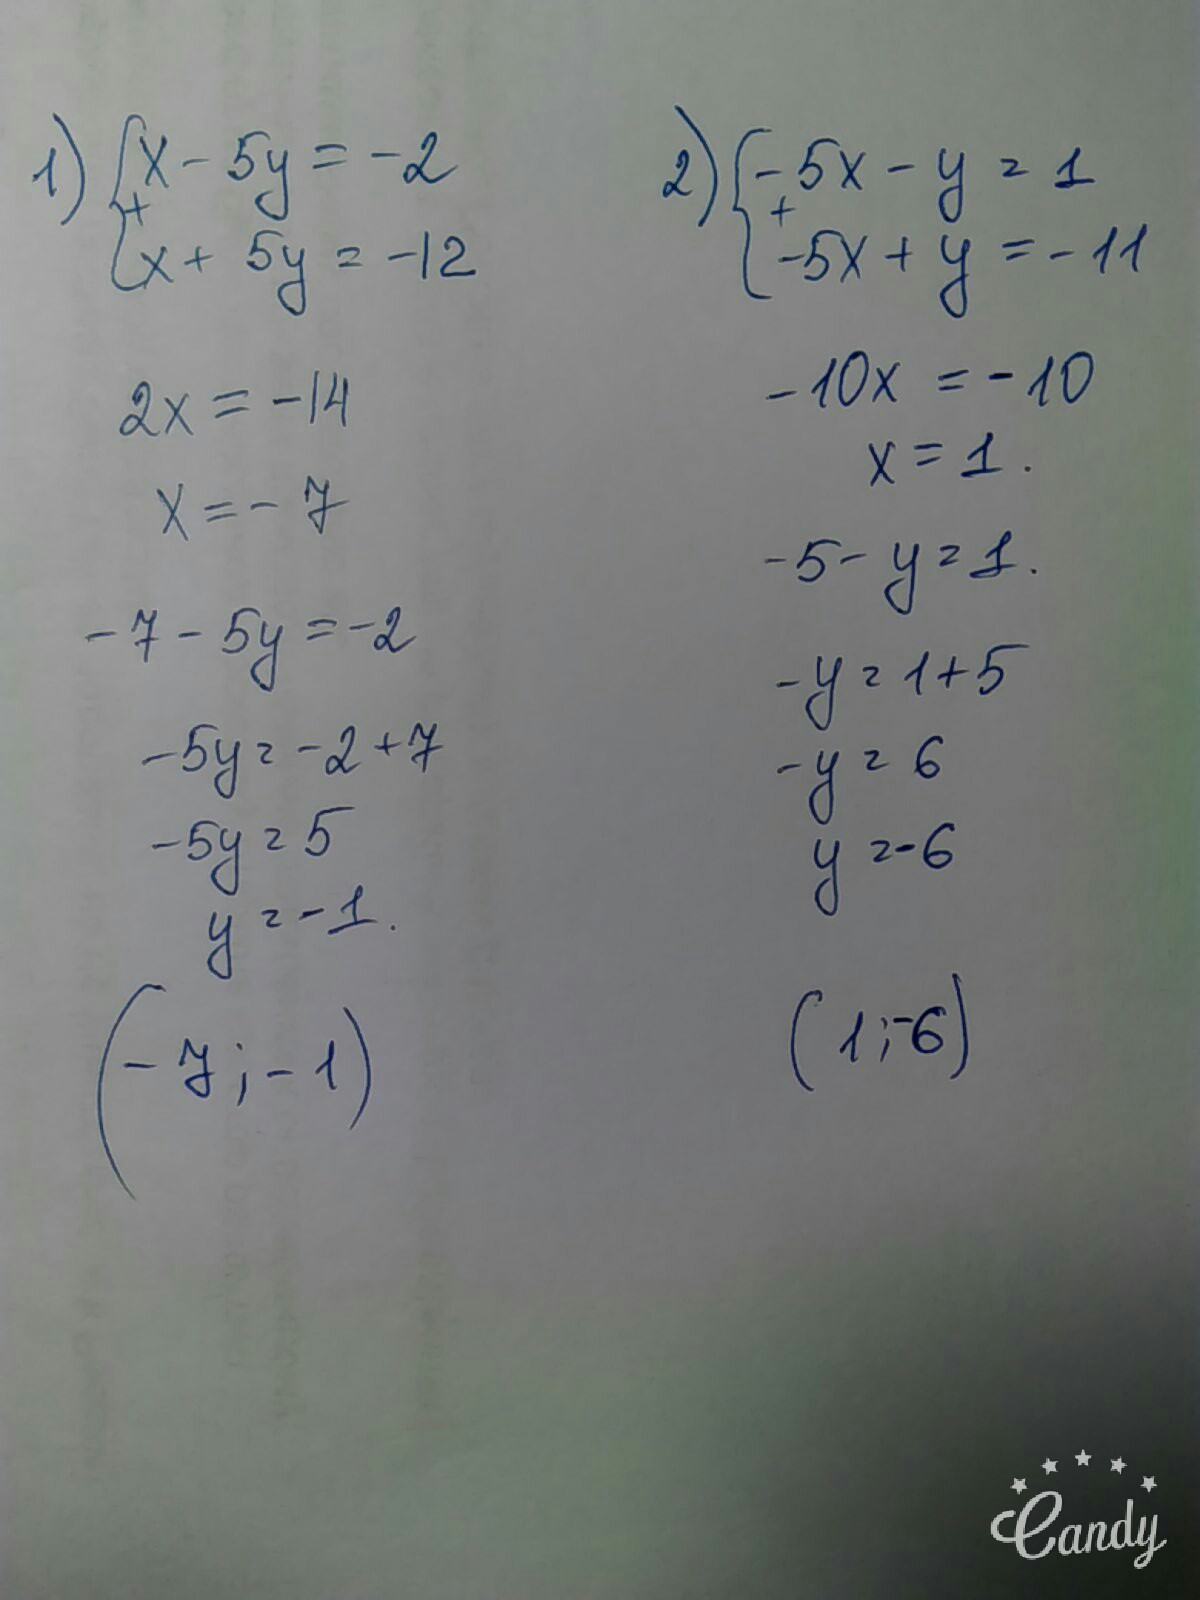 1) { x - 5y = -2
+
x + 5y = -12
2x = -14
x = -7
-7 - 5y = -2
-5y = -2 + 7
-5y = 5
y = -1.
(-7; -1)
2) { -5x - y = 1
+
-5x + y = -11
-10x = -10
x = 1.
-5 - y = 1.
-y = 1 + 5
-y = 6
y = -6
(1; -6)
Candy